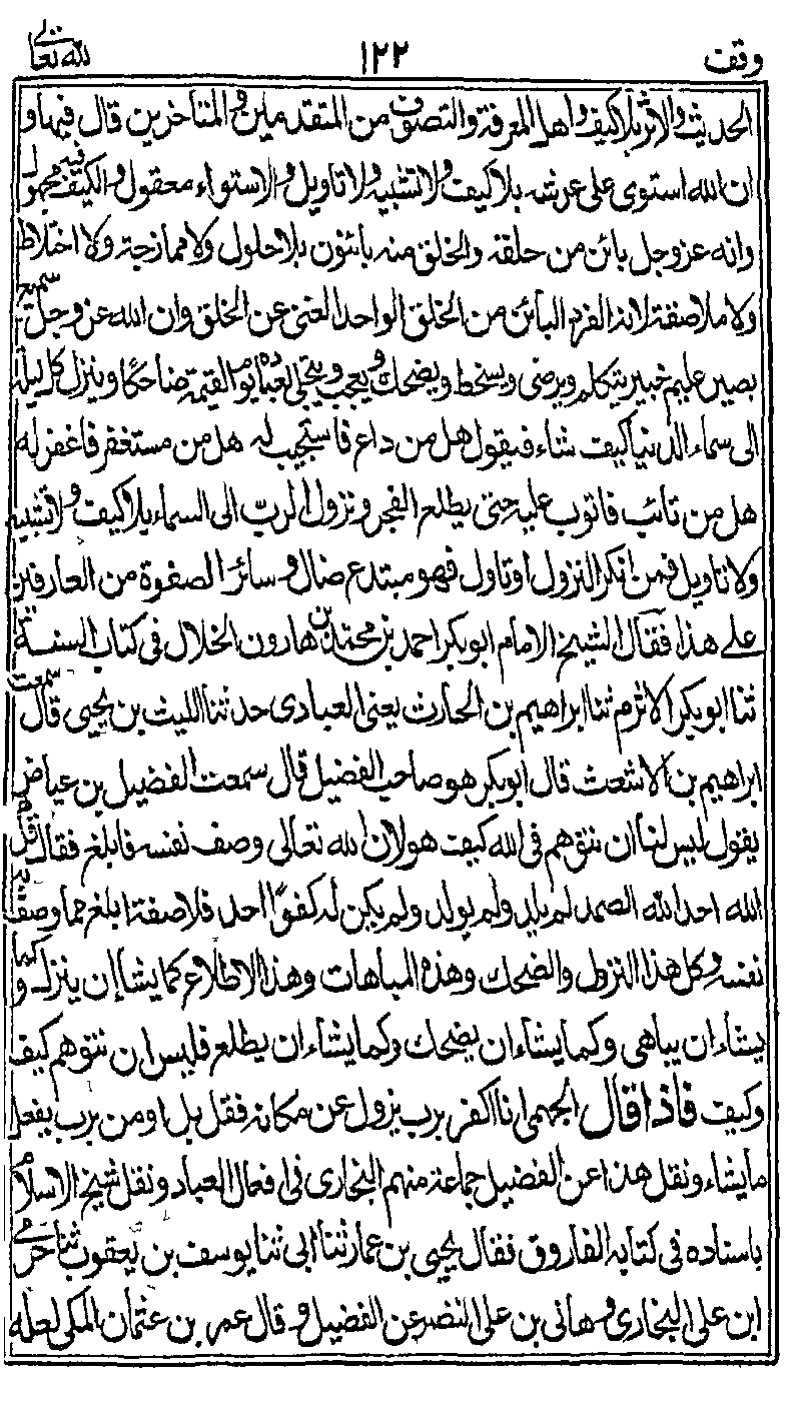 وقف ١٢٢ لله تعالى
الحديث والاثر بلا كيف واهل المعرفة والتصوف من المتقدمين والمتاخرين قال فيها و
ان الله استوى على عرشه بلا كيف ولا تشبيه ولا تاويل والاستواء معقول والكيف فيه مجهول
وانه عز وجل بائن من خلقه والخلق منه بائنون بلا حلول ولا ممازجة ولا اختلاط
ولا ملاصقة لانه الفرد البائن من الخلق الواحد الغنى عن الخلق وان الله عز وجل سميع
بصير عليم خبير يتكلم ويرضى ويسخط ويضحك ويعجب ويتجلى لعباده يوم القيمة ضاحكا وينزل كل ليلة
الى سماء الدنيا كيف شاء فيقول هل من داع فاستجيب له هل من مستغفر فاغفر له
هل من تائب فاتوب عليه حتى يطلع الفجر ونزول الرب الى السماء بلا كيف ولا تشبيه
ولا تاويل فمن انكر النزول او تاول فهو مبتدع ضال وسائر الصفوة من العارفين
على هذا فقال الشيخ الامام ابو بكر احمد بن محمد بن هارون الخلال فى كتاب السنة
ثنا ابو بكر الاثرم ثنا ابراهيم بن الحارث يعنى العبادى حدثنا الليث بن يحيى قال سمعت
ابراهيم بن الاشعث قال ابو بكر هو صاحب الفضيل قال سمعت الفضيل بن عياض
يقول ليس لنا ان نتوهم فى الله كيف هو لان لله تعالى وصف نفسه فابلغ فقال قل هو
الله احد الله الصمد لم يلد ولم يولد ولم يكن له كفوا احد فلا صفة ابلغ مما وصف به
نفسه وكل هذا النزول والضحك وهذه المباهات وهذا الاطلاع كما يشا ان ينزل وكما
يشاء ان يباهى وكما يشاء ان يضحك وكما يشاء ان يطلع فليس ان نتوهم كيف
وكيف فاذا قال الجهمى انا اكفر برب يزول عن مكانه فقل بل اومن برب يفعل
ما يشاء ونقل هذا عن الفضيل جماعة منهم البخارى فى افعال العباد ونقل شيخ الاسلام
باسناده فى كتابه الفاروق فقال يحيى بن عمار ثنا ابى ثنا يوسف بن يعقوب ثنا حرمى
ابن على البخارى وهانى بن على النضر عن الفضيل وقال عمر بن عثمان المكى لعله